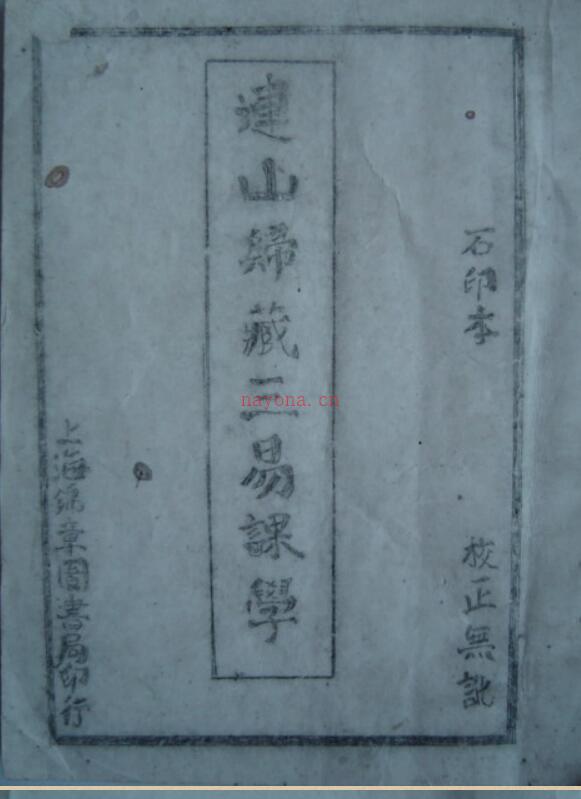 石印本
校正無訛
連山歸藏三易課學
上海錦章圖書局印行
nayona.cn